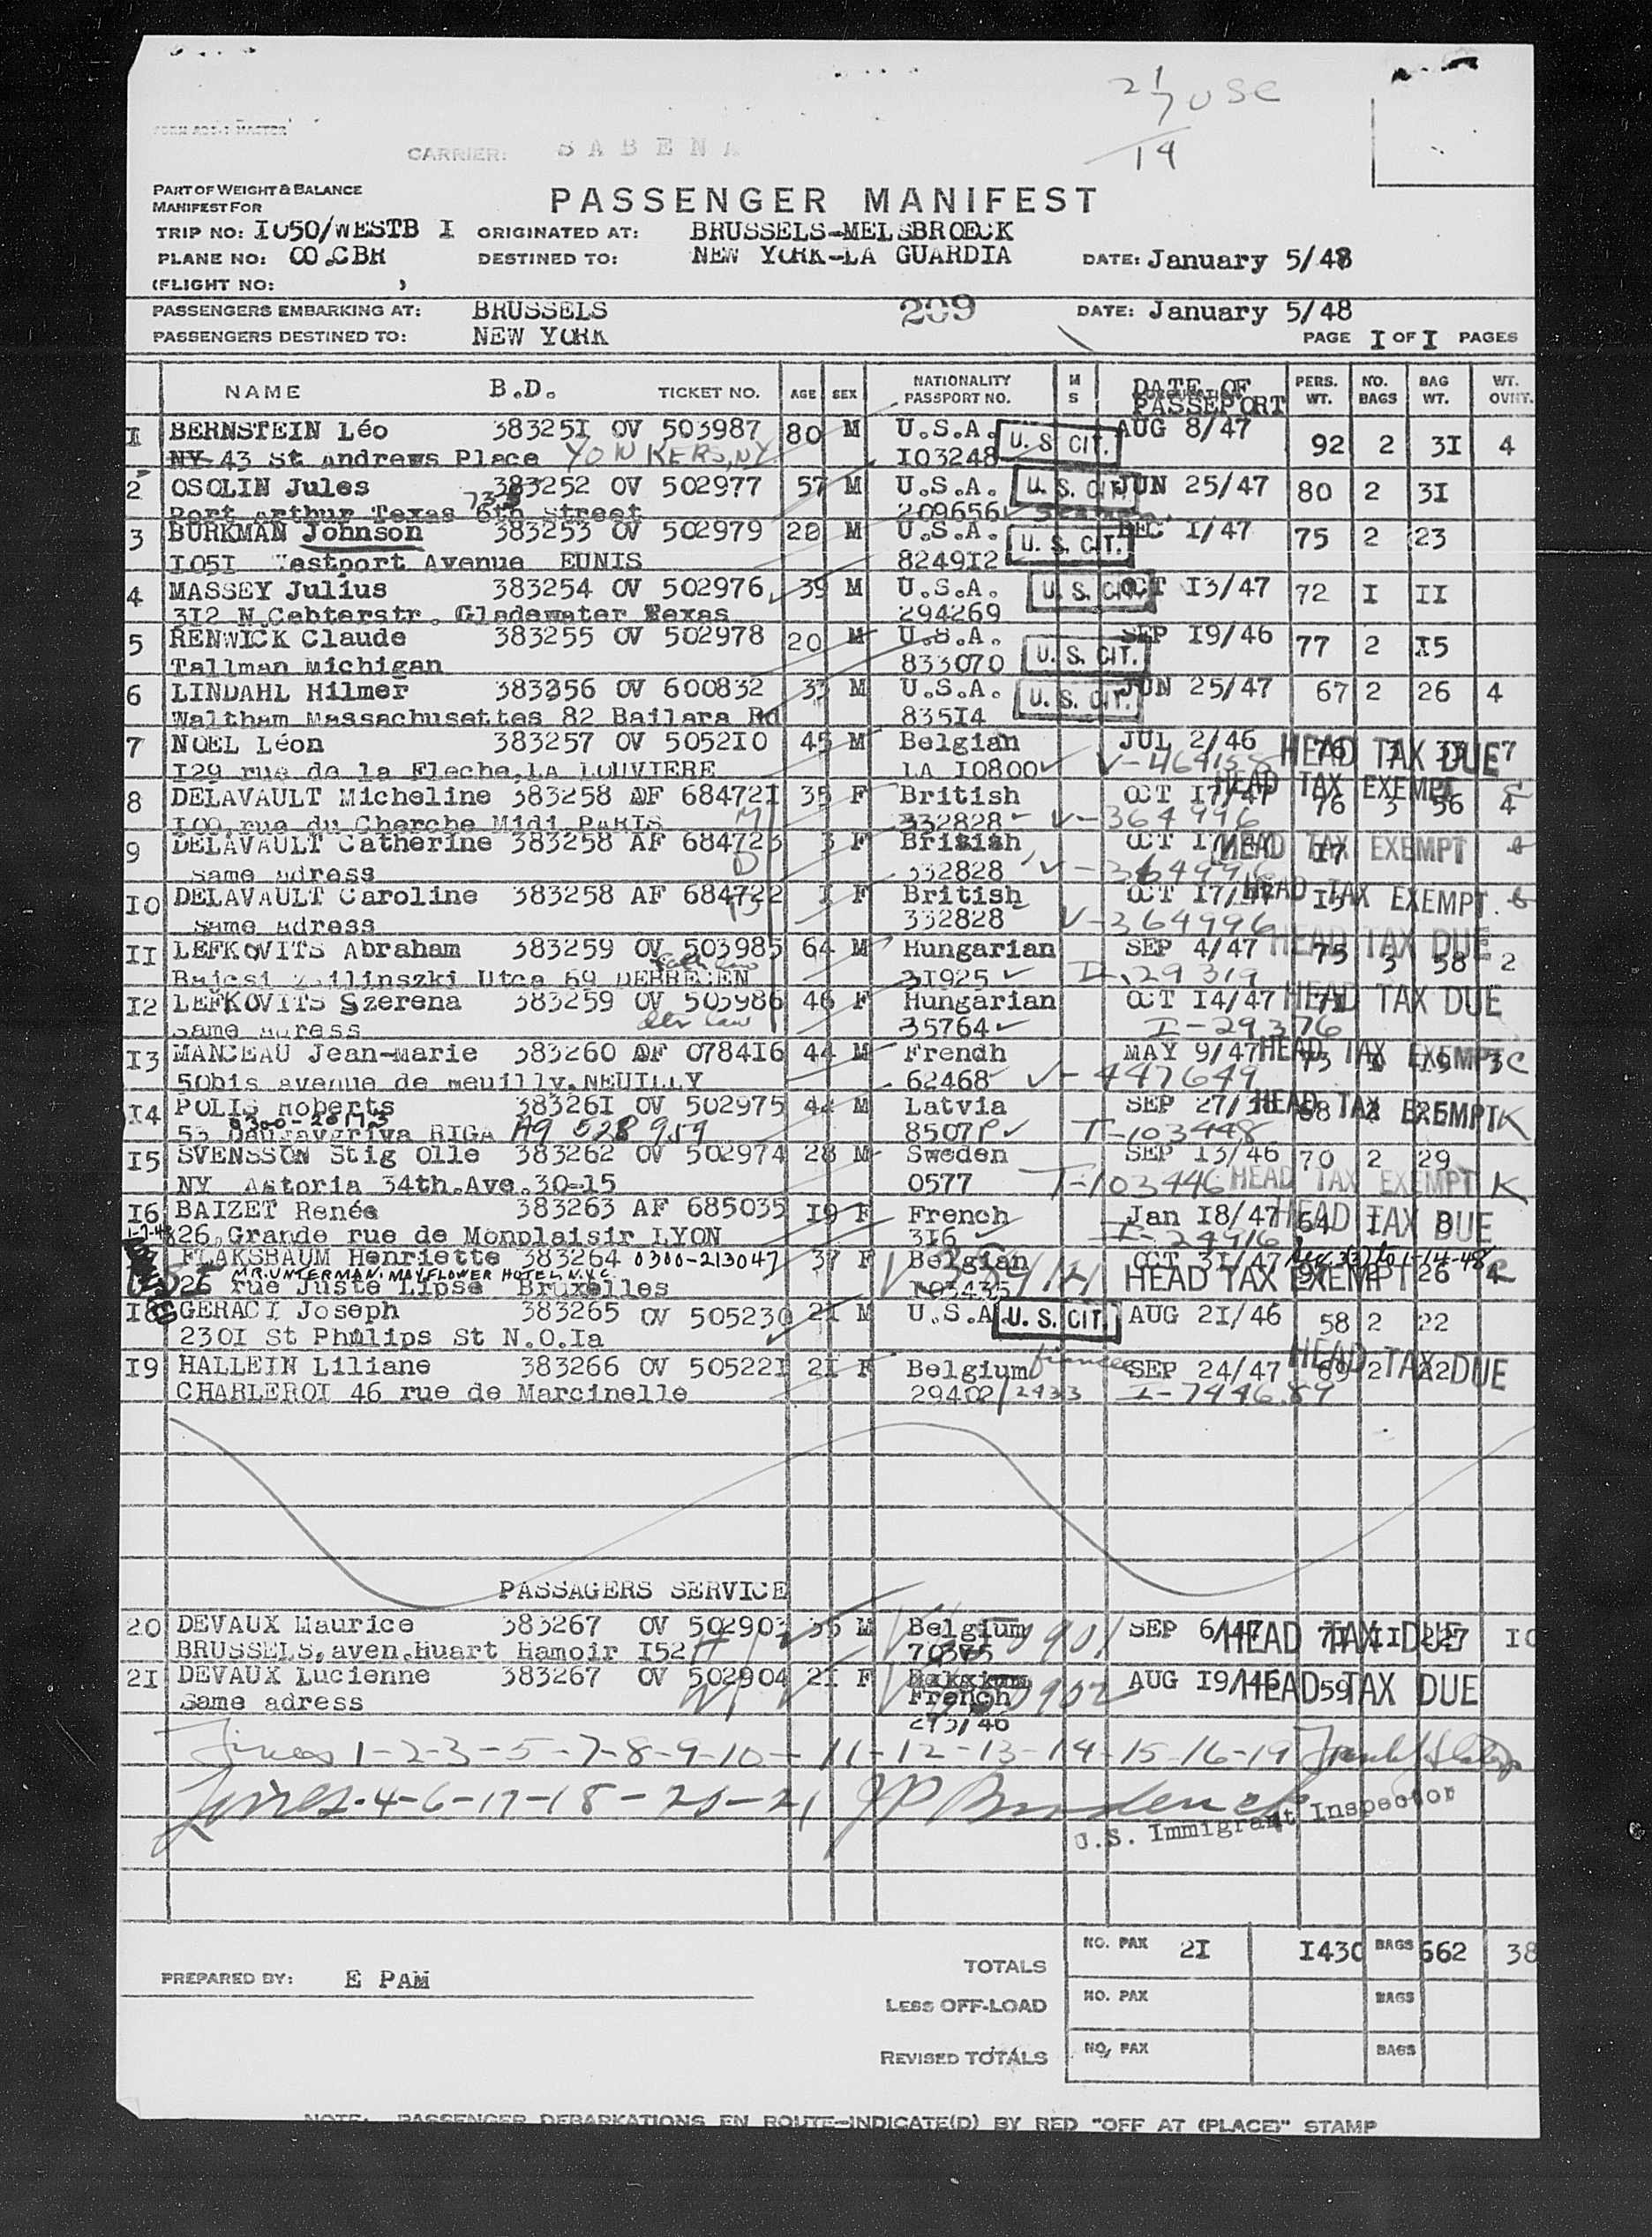 2 1/7 USC
19
CARRIER: SABENA
PART OF WEIGHT & BALANCE
MANIFEST FOR
PASSENGER MANIFEST
TRIP NO: I050/WESTB I ORIGINATED AT: BRUSSELS-MELSBROECK
PLANE NO: OO.CBR DESTINED TO: NEW YORK-LA GUARDIA DATE: January 5/48
(FLIGHT NO: )
PASSENGERS EMBARKING AT: BRUSSELS 209 DATE: January 5/48
PASSENGERS DESTINED TO: NEW YORK PAGE I OF I PAGES
NAME B.D. TICKET NO. AGE SEX NATIONALITY PASSPORT NO. M S DATE OF PASSEPORT PERS. WT. NO. BAGS BAG WT. WT. OVWT.
I BERNSTEIN Léo 38325I OV 503987 80 M U.S.A. U.S. CIT. AUG 8/47 92 2 3I 4
NY 43 St Andrews Place YONKERS, NY I03248
2 OSOLIN Jules 383252 OV 502977 57 M U.S.A. U.S. CIT. JUN 25/47 80 2 3I
Port Arthur Texas 6th Street 209656
3 BURKMAN Johnson 383253 OV 502979 20 M U.S.A. U.S. CIT. DEC I/47 75 2 23
I05I Westport Avenue EUNIS 8249I2
4 MASSEY Julius 383254 OV 502976 39 M U.S.A. U.S. CIT. OCT I3/47 72 I II
3I2 N.Cebterstr. Gladewater Texas 294269
5 RENWICK Claude 383255 OV 502978 20 M U.S.A. U.S. CIT. SEP I9/46 77 2 I5
Tallman Michigan 833070
6 LINDAHL Hilmer 383256 OV 600832 33 M U.S.A. U.S. CIT. JUN 25/47 67 2 26 4
Waltham Massachusettes 82 Bailara Rd 835I4
7 NOEL Léon 383257 OV 5052I0 45 M Belgian JUL 2/46 HEAD TAX DUE 7
I29 rue de la Fleche.LA LOUVIERE LA I0800 V-464138
8 DELAVAULT Micheline 383258 AF 68472I 35 F British OCT I7/47 HEAD TAX EXEMPT 76 3 56 4
I00,rue du Cherche Midi PARIS 332828 V-364996
9 DELAVAULT Catherine 383258 AF 684723 3 F British OCT I7/47 I7 HEAD TAX EXEMPT
Same adress 332828 V-364996
I0 DELAVAULT Caroline 383258 AF 684722 I F British OCT I7/47 I3 HEAD TAX EXEMPT
Same adress 332828 V-364996
II LEFKOVITS Abraham 383259 OV 503985 64 M Hungarian SEP 4/47 HEAD TAX DUE 75 3 58 2
Bajcsi Zsilinszki Utca 69 DEBRECEN 3I925 I-29319
I2 LEFKOVITS Szerena 383259 OV 503986 46 F Hungarian OCT I4/47 HEAD TAX DUE
Same adress 35764 I-29376
I3 MANCEAU Jean-marie 383260 AF 0784I6 44 M Frendh MAY 9/47 HEAD TAX EXEMPT
50bis avenue de neuilly.NEUILLY 62468 V-447649
I4 POLIS Roberts 38326I OV 502975 44 M Latvia SEP 27/38 HEAD TAX EXEMPT K
53 Daugavgriva RIGA A9 528 959 8507P T-103448
I5 SVENSSON Stig Olle 383262 OV 502974 28 M Sweden SEP I3/46 70 2 29
NY Astoria 34th.Ave.30-I5 0577 T-103446 HEAD TAX EXEMPT K
I6 BAIZET Renée 383263 AF 685035 I9 F French Jan I8/47 64 I 8 HEAD TAX DUE
26,Grande rue de Monplaisir LYON 3I6 I-24916
FLAKSBAUM Henriette 383264 0300-213047 37 F Belgian OCT 31/47
MR. UNTERMAN. MAYFLOWER HOTEL, N.Y.C.
26 rue Juste Lipse Bruxelles I03435 HEAD TAX EXEMPT 26 4
I8 GERACI Joseph 383265 OV 505230 2I M U.S.A U.S. CIT. AUG 2I/46 58 2 22
230I St Phmlips St N.O.Ia
I9 HALLEIN Liliane 383266 OV 50522I 2I F Belgium fiancee SEP 24/47 HEAD TAX DUE
CHARLEROI 46 rue de Marcinelle 29402/2433 I-744689
PASSAGERS SERVICE
20 DEVAUX Maurice 383267 OV 502903 35 M Belgium SEP 6/47 HEAD TAX DUE
BRUSSELS,aven.Huart Hamoir I52 70375
2I DEVAUX Lucienne 383267 OV 502904 2I F French AUG I9/46 59 HEAD TAX DUE
Same adress
Lines 1-2-3-5-7-8-9-10-11-12-13-14-15-16-19
Lines-4-6-17-18-20-21
U.S. Immigrant Inspector
TOTALS NO. PAX 2I I430 BAGS 662 38
PREPARED BY: E PAM
LESS OFF-LOAD NO. PAX BAGS
REVISED TOTALS NO. PAX BAGS
NOTE: PASSENGER DEBARKATIONS EN ROUTE-INDICATE(D) BY RED "OFF AT (PLACE)" STAMP